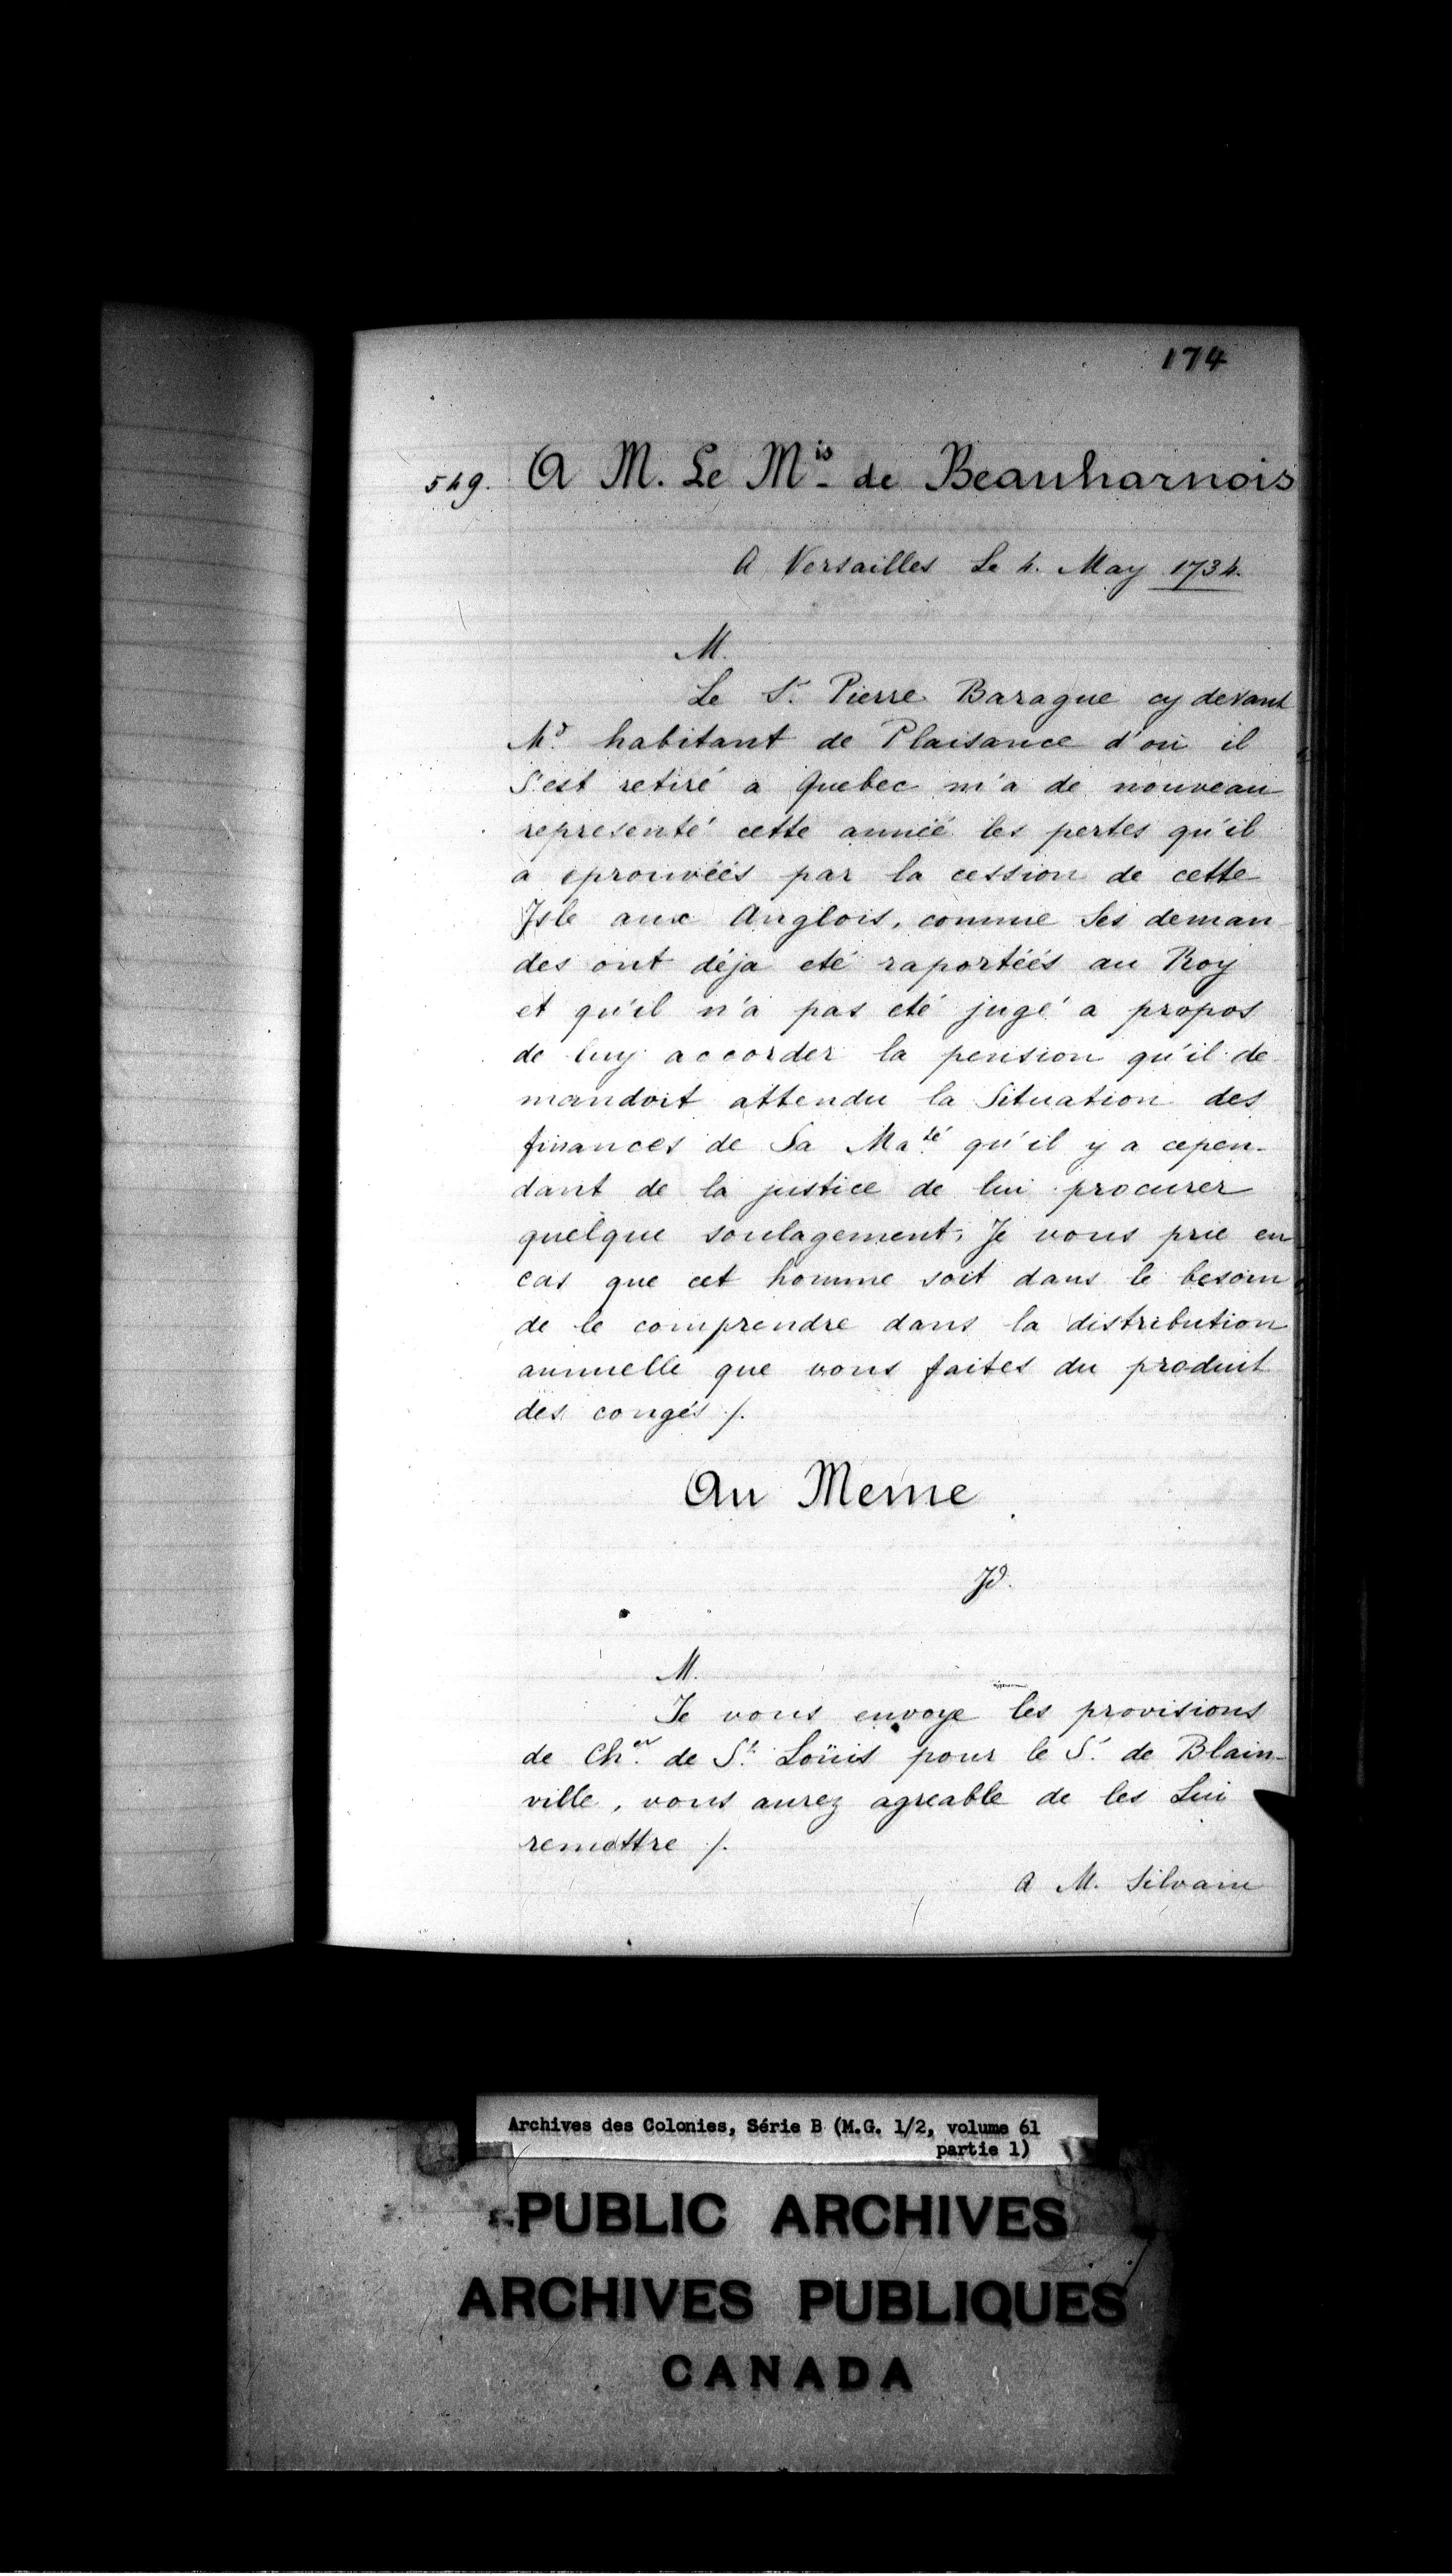 174
549. A M. Le Mis de Beauharnois
A Versailles Le 4. May 1734.
M.
Le Sr. Pierre Barague cy devant
Md. habitant de Plaisance d'où il
S'est retiré a Quebec m'a de nouveau
representé cette anneé les pertes qu'il
a eprouvéés par la cession de cette
Isle aux Anglois, comme Ses deman
des ont déja eté raportéés au Roy
et qu'il n'a pas eté jugé a propos
de luy accorder la pension qu'il de
mandoit attendu la Situation des
finances de Sa Ma.té qu'il y a cepen-
dant de la justice de lui procurer
quelque soulagement, Je vous prie en
cas que cet homme soit dans le besoin
de le comprendre dans la distribution
annuelle que vous faites du produit
des congés /.
Au Meme
Id.
M.
Je vous envoye les provisions
de Ch.er de St. Loüis pour le Sr. de Blain-
ville, vous aurez agreable de les Lui
remettre /.
A M. Silvain
Archives des Colonies, Série B (M.G. 1/2, volume 61
partie 1)
PUBLIC ARCHIVES
ARCHIVES PUBLIQUES
CANADA